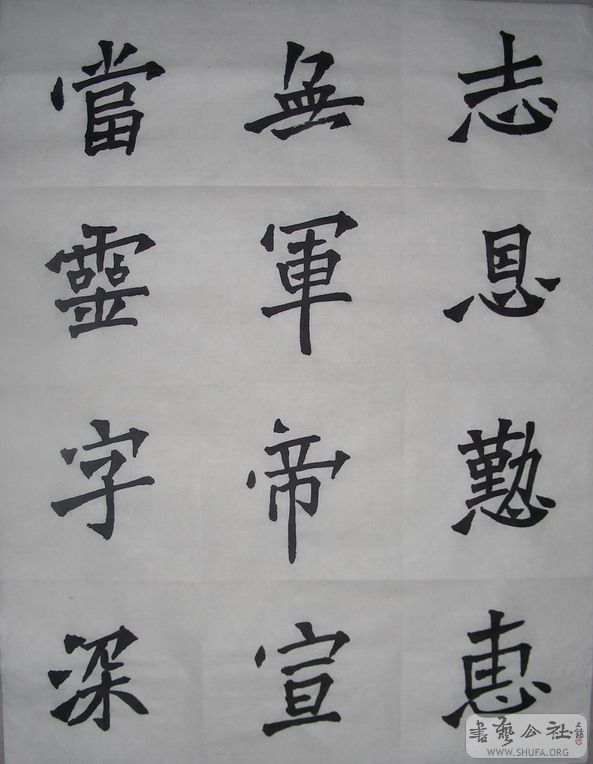 志恩懃惠
軍帝宣
當靈字深
書藝公社
WWW.SHUFA.ORG